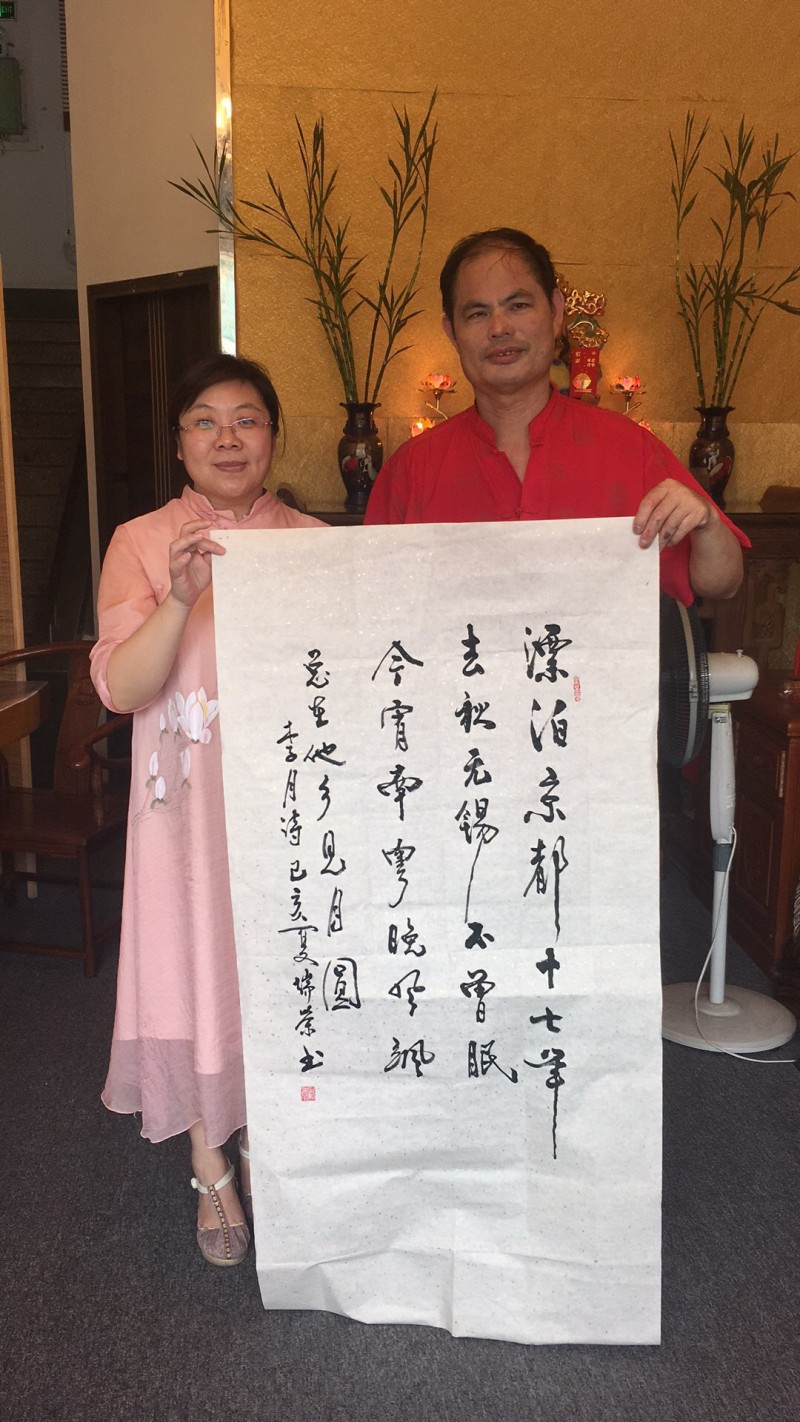 漂泊京都十七年
去秋无锡不曾眠
今宵南粤晚风飘
总在他乡见月圆
李月诗己亥夏瑞荣书